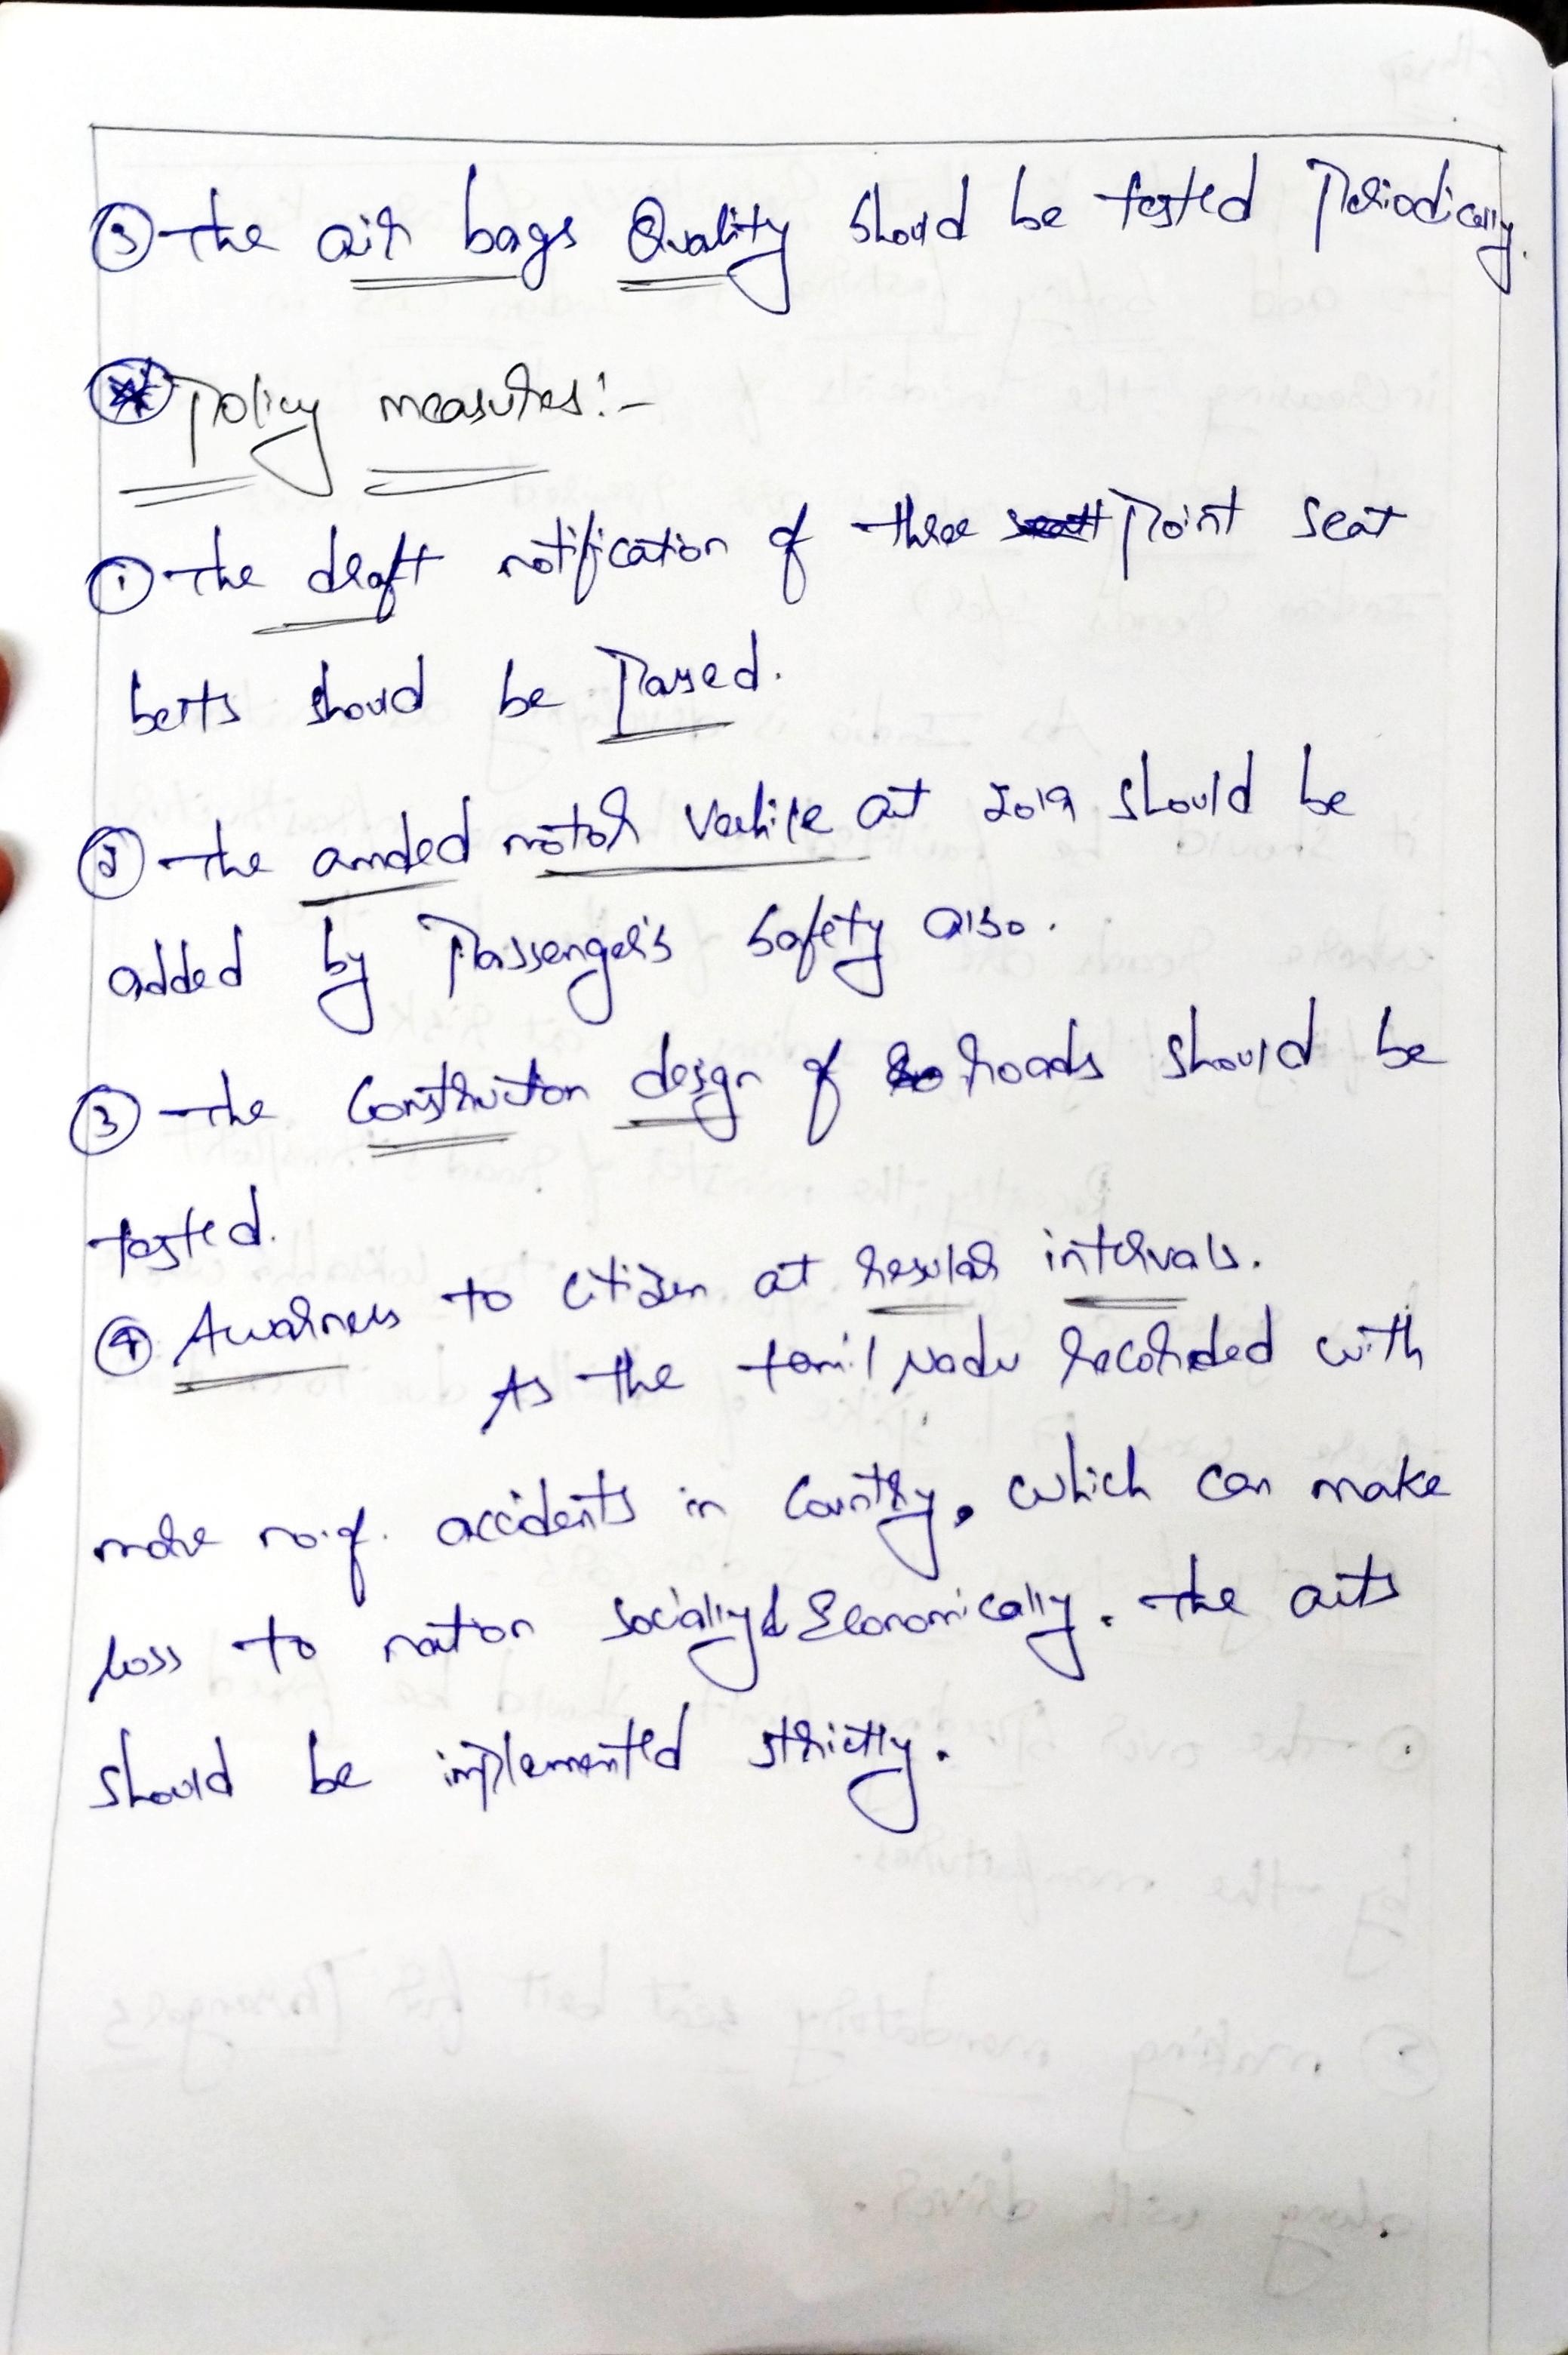 ③ The air bags Quality should be tested Periodically.
Policy measures:-
① The draft notification of three Point seat
belts should be Passed.
② The amded motor Vechile act 2019 should be
added by Passenger's Safety also.
③ The Construction design of roads should be
tested.
④ Awarness to citizen at regular intervals.
As the tamil Nadu recorded with
more no.of. accidents in Country, which can make
loss to nation socially & Economically. The acts
should be implemented strictly.